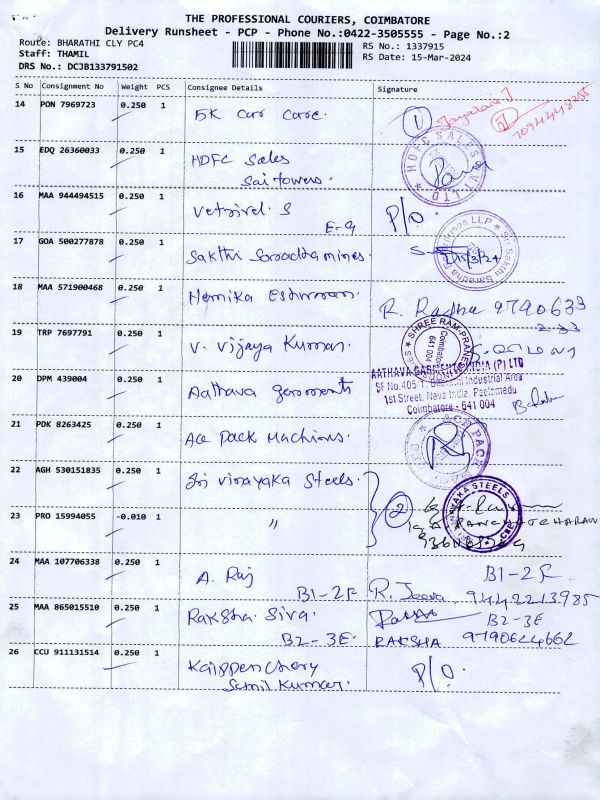 THE PROFESSIONAL COURIERS, COIMBATORE
Delivery Runsheet - PCP - Phone No.:0422-3505555 - Page No.:2
Route: BHARATHI CLY PC4
RS No.: 1337915
Staff: THAMIL
RS Date: 15-Mar-2024
DRS No.: DCJB133791502
S No Consignment No Weight PCS Consignee Details Signature
14 PON 7969723 0.250 1 5K car care. 1
15 EDQ 26360033 0.250 1 HDFC Sales
Sai towers.
HDFC SALES PVT LTD
16 MAA 944494515 0.250 1 Vetrivel. S P/O.
E-9
17 GOA 500277878 0.250 1 Sakthi Saradha mines. 15/3/24
18 MAA 571900468 0.250 1 Hemika Eshwaran. R. Radha 9790633
19 TRP 7697791 0.250 1 V. Vijaya Kumar.
SHREE RAM
Coimbatore
641 004
AATHAVA GARMENTS INDIA (P) LTD
SF No.405 Industrial Area
20 DPM 439004 0.250 1 Aathava garments
1st Street, Nava India, Peelamedu
Coimbatore - 641 004
21 PDK 8263425 0.250 1 Ace Pack Machines. ACE PACK
22 AGH 530151835 0.250 1 Sri vinayaka Steels. 2
23 PRO 15994055 -0.010 1 "
24 MAA 107706338 0.250 1 A. Raj B1-2F
B1-2F R. Jeeva, 9442213985
25 MAA 865015510 0.250 1 Raksha Siva. B2-3E
B2-3E RAKSHA 9790624662
26 CCU 911131514 0.250 1 Kaippenchery P/O.
Sunil Kumar.